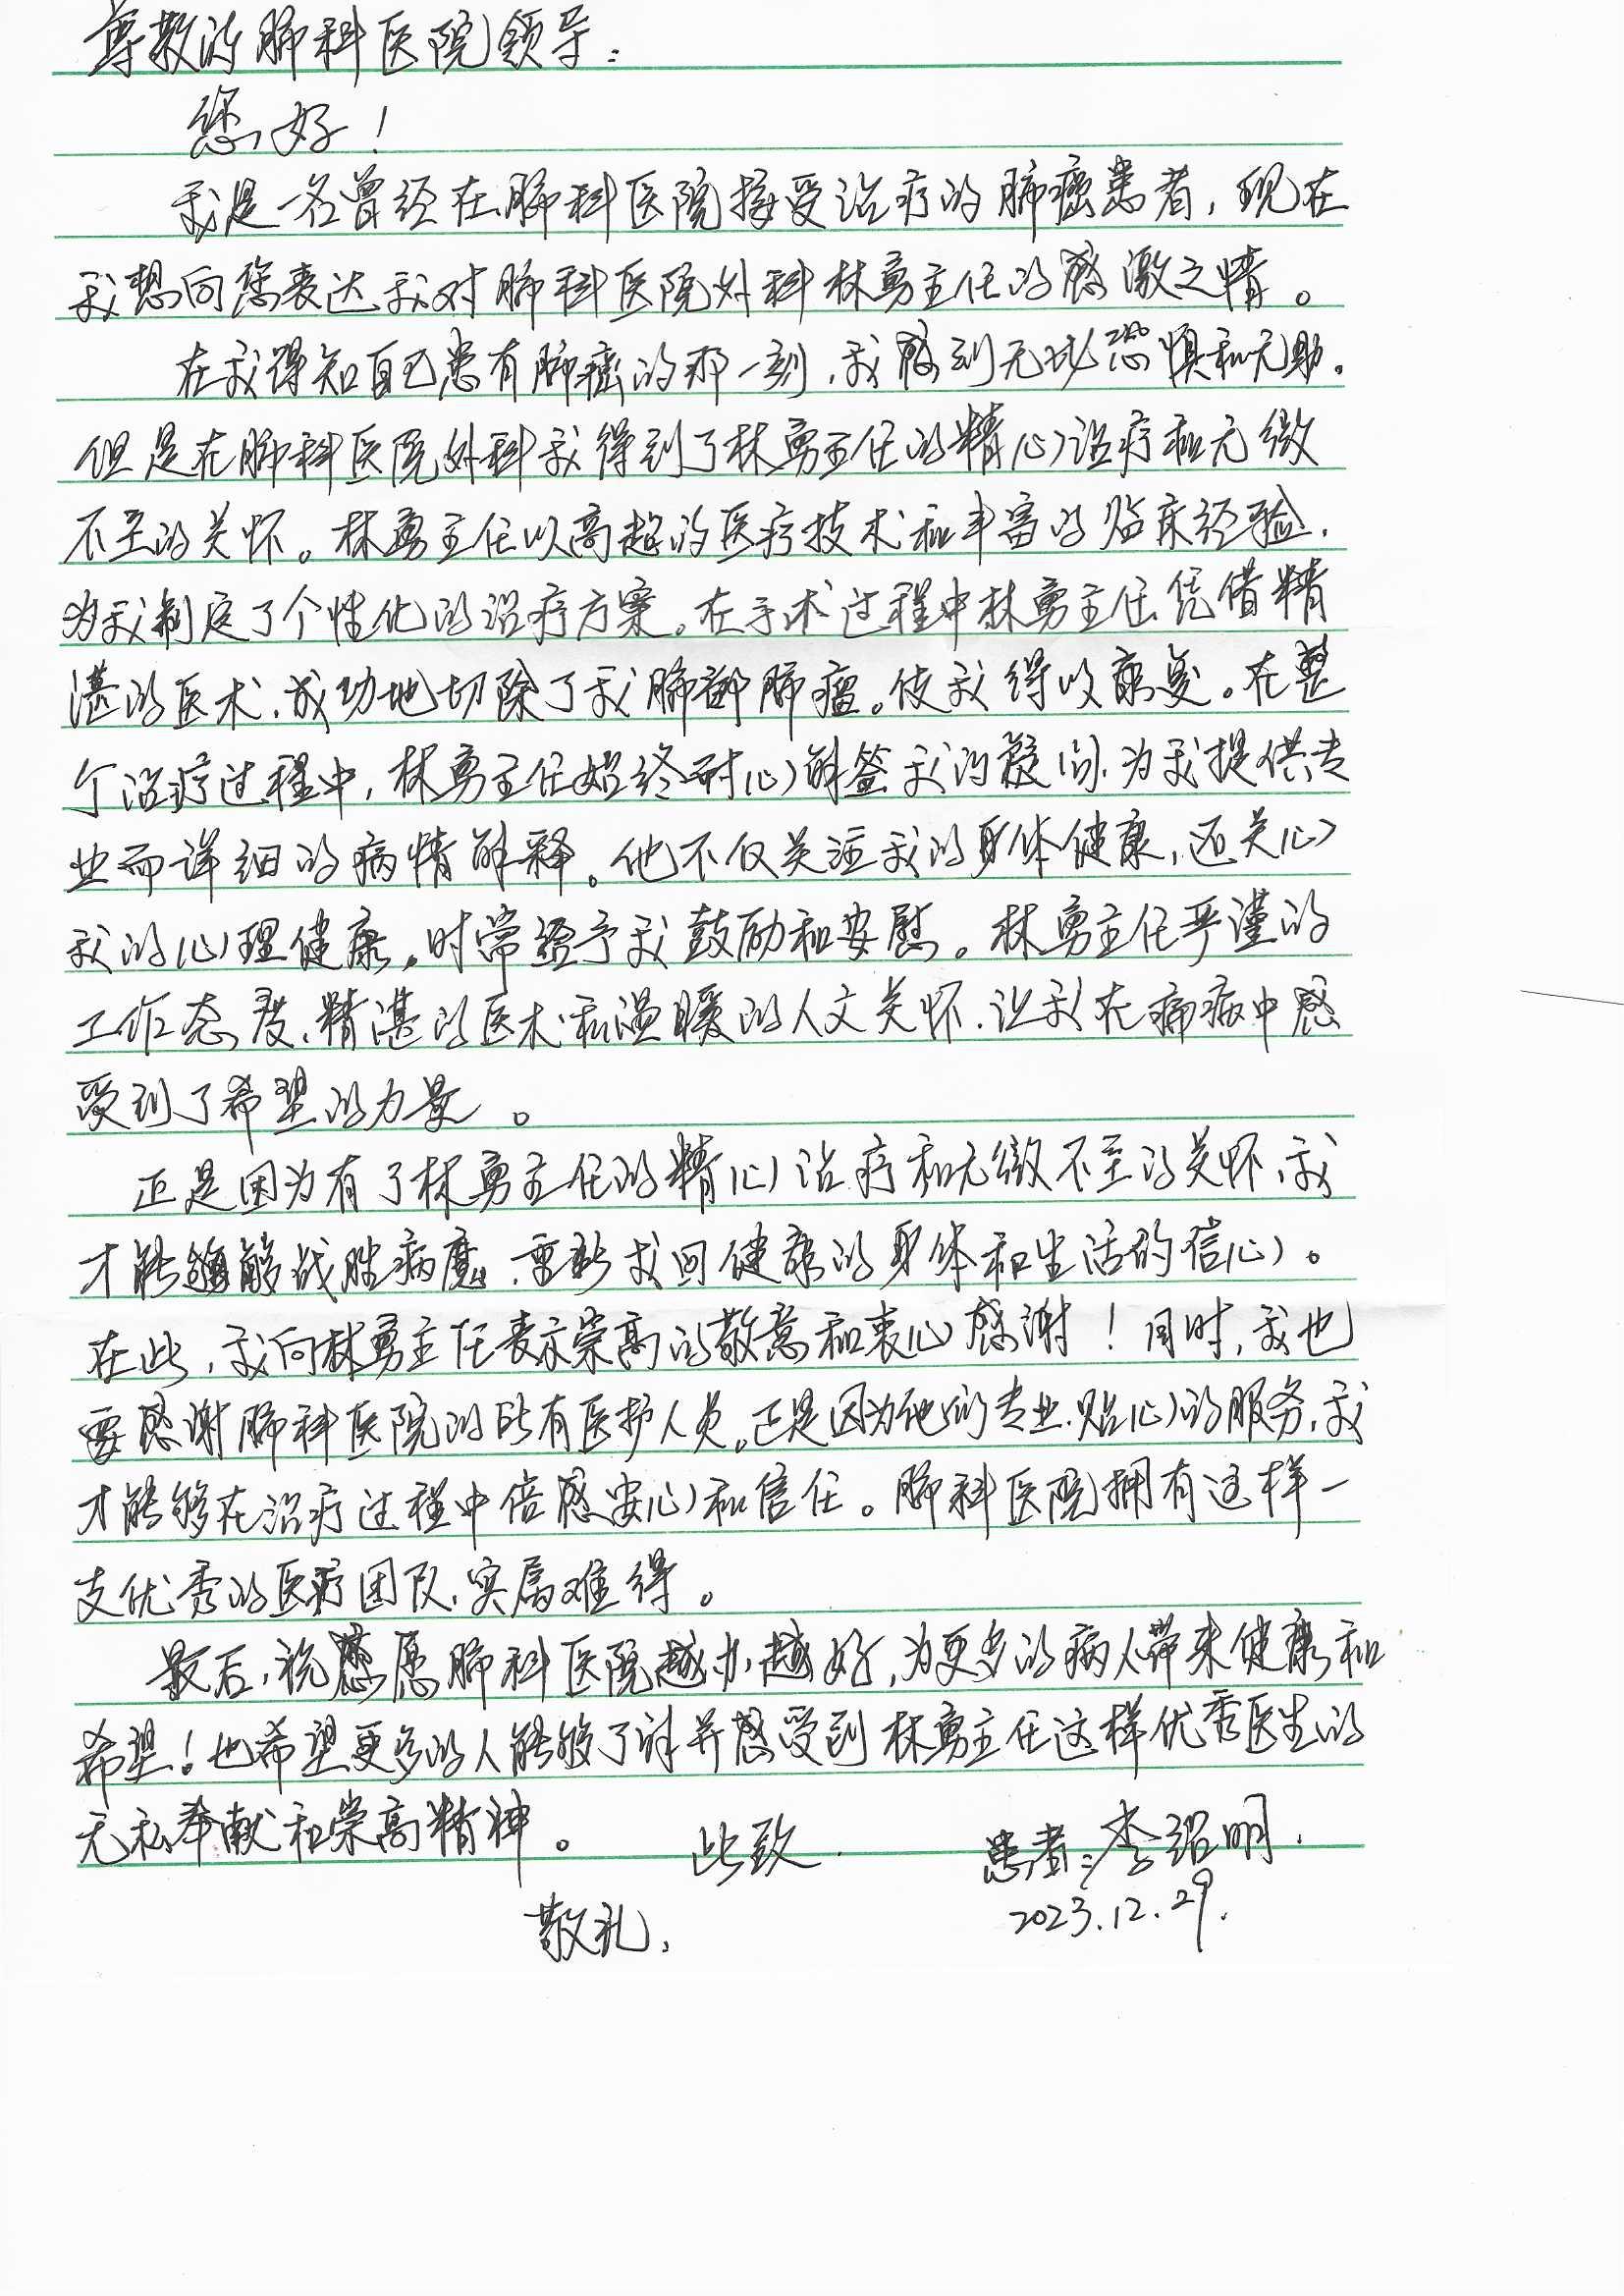 尊敬的肺科医院领导：
您好！
我是一名曾经在肺科医院接受治疗的肺癌患者，现在
我想向您表达我对肺科医院外科林勇主任的感激之情。
在我得知自己患有肺癌的那一刻，我感到无比恐惧和无助。
但是在肺科医院外科我得到了林勇主任的精心治疗和无微
不至的关怀。林勇主任以高超的医疗技术和丰富的临床经验，
为我制定了个性化的治疗方案。在手术过程中林勇主任凭借精
湛的医术，成功地切除了我肺部肿瘤。使我得以康复。在整
个治疗过程中，林勇主任始终耐心解答我的疑问，为我提供专
业而详细的病情解释。他不仅关注我的身体健康，还关心
我的心理健康，时常给予我鼓励和安慰。林勇主任严谨的
工作态度、精湛的医术和温暖的人文关怀，让我在病痛中感
受到了希望的力量。
正是因为有了林勇主任的精心治疗和无微不至的关怀，我
才能够战胜病魔，重新找回健康的身体和生活的信心。
在此，我向林勇主任表示崇高的敬意和衷心感谢！同时，我也
要感谢肺科医院的所有医护人员。正是因为他们的专业、贴心的服务，我
才能够在治疗过程中倍感安心和信任。肺科医院拥有这样一
支优秀的医疗团队，实属难得。
最后，祝愿肺科医院越办越好，为更多的病人带来健康和
希望！也希望更多的人能够了解并感受到林勇主任这样优秀医生的
无私奉献和崇高精神。
此致
患者：李绍明.
敬礼，
2023.12.29.